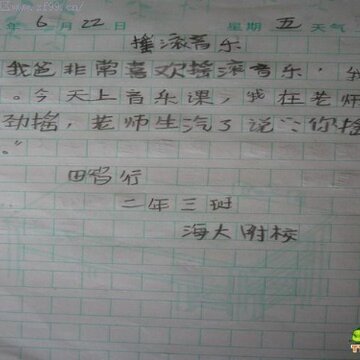 www.zf99.cn/
年 6 月 22 日 星期 五 天气
摇滚音乐
我爸非常喜欢摇滚音乐，我
。今天上音乐课，我在老师
劲摇，老师生汽了说："你摇
。"
田 行
二年三班
海大附校